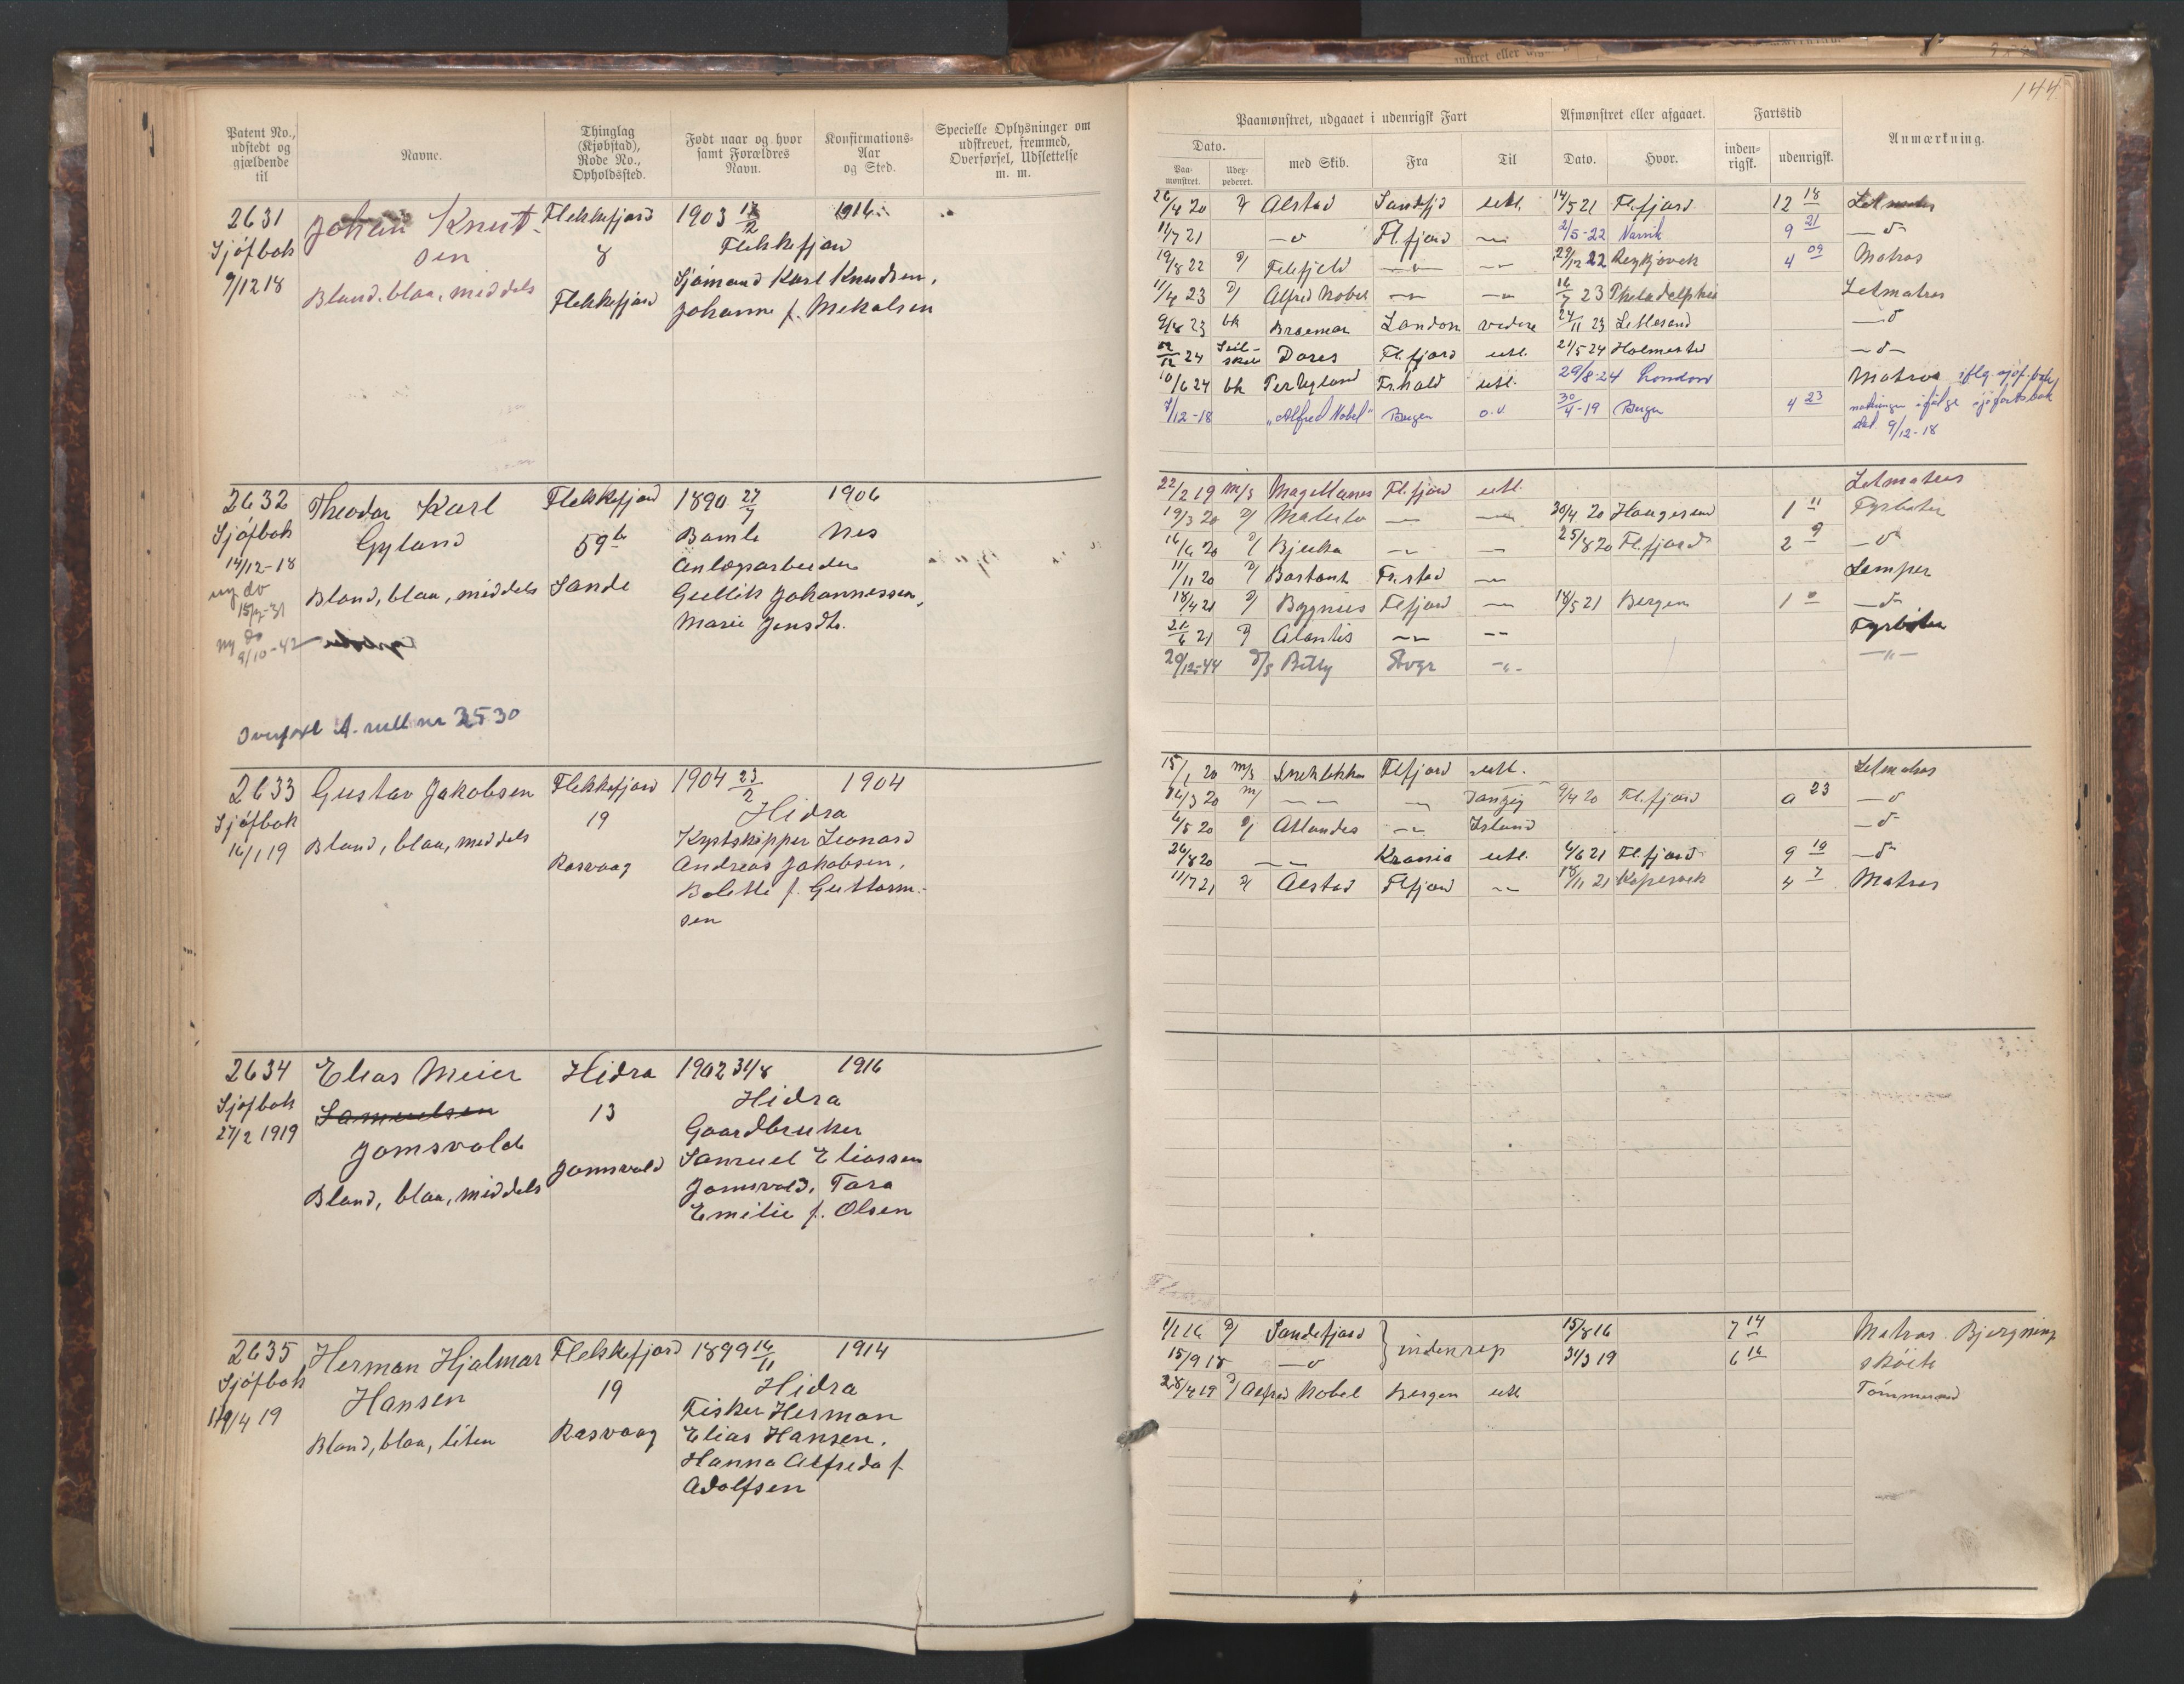 144
Patent No., udstedt og gjældende til
Navne.
Thinglag (Kjøbstad), Rode No., Opholdssted.
Født naar og hvor samt Forældres Navn.
Konfirmations-Aar og Sted.
Specielle Oplysninger om udskrevet, fremmed, Overførsel, Udslettelse m. m.
Paamønstret, udgaaet i udenrigsk Fart
Afmønstret eller afgaaet.
Fartstid
Anmærkning.
Dato.
Paa-mønstret.
Udex-pederet.
med Skib.
Fra
Til
Dato.
Hvor.
inden-rigsk.
udenrigsk.
2631 Johan Knut- Flekkefjord 1903 1916
Sjöfbok sen 8 Flekkefjord
9/12 18 Sjömand Karl Knudsen,
Bland, blaa, middels Flekkefjord Johanne f. Mekalsen
26/4 20 D/ Alstad Sandefjd utl. 14/5 21 Fl.fjord 12 18 Letmatros
11/7 21 —o Fl.fjord — 2/5-22 Narvik 9 21 —o—
19/8 22 D/ Filefjeld — — 29/12 22 Reykjavik 4 09 Matros
11/4 23 D/ Alfred Nobel — — 16/7 23 Philadelphia Letmatros
9/8 23 bk Braemar London videre 24/11 23 Lillesand —o
24 Seilskib Dores Fl.fjord utl. 21/5 24 Holmestd —o—
10/6 24 bk Per Ugland Fr.hald utl. 29/8-24 London Matros iflg. sjöf.bok
7/12-18 "Alfred Nobel" Bergen o.v 30/4-19 Bergen 4 23 ifølge sjøfartsbok
dat. 9/12-18
2632 Theodor Karl Flekkefjord 1890 27/7 1906
Sjöfbok Gyland 59b Bamle Nes
14/12-18 Anlægsarbeider
ny do Bland, blaa, middels Sande Gullik Johannessen,
15/7-31 Marie Jensdtr.
ny do
9/10-42
Overført A. rull nr 3530
22/2 19 m/s Magellanes Fl.fjord utl. Letmatros
19/3 20 D/ — — 30/4 20 Haugesund 1 11 Fyrböter
16/6 20 D/ Bjerka — — 25/8 20 Fl.fjord 2 9 —o
11/11 20 D/ Bastant Fr.stad — Lemper
18/4 21 D/ Bygnus Flfjord — 18/5 21 Bergen 1 0 —o—
21/6 21 D/ Atlantis — — Fyrböter
29/12-44 D/S Betty Svgr -"- —"—
2633 Gustav Jakobsen Flekkefjord 1904 23/2 1904
Sjöfbok 19 Hidra
16/1 19 Bland, blaa, middels Kystskipper Leonard
Rasvaag Andreas Jakobsen,
Bolette f. Guttorm-
sen
15/1 20 m/s Flfjord utl. Letmatros
16/3 20 m/ — — Danzig 9/4 20 Fl.fjord 0 23 —o
6/5 20 D/ Atlandes — Island —o
26/8 20 — Krania utl. 4/6 21 Fl.fjord 9 10 —o—
11/7 21 D/ Alstad Flfjord — 18/11 21 Kopervik 4 7 Matros
2634 Elias Meier Hidra 1902 31/8 1916
Sjöfbok Samuelsen 13 Hidra
27/2 1919 Jomsvold Gaardbruker
Jomsvold Samuel Eliassen
Bland, blaa, middels Jomsvold, Tara
Emilie f. Olsen
2635 Herman Hjalmar Flekkefjord 1899 16/11 1914
Sjöfbok Hansen 19 Hidra
19/4 19 Fisker Herman
Bland, blaa, liten Rasvaag Elias Hansen,
Hanna Alfreda f.
Adolfsen
1/1 16 D/ Sandefjord indenrigs 15/8 16 7 14 Matros. Bjergnings
15/9 18 —o 31/3 19 6 16 sköite
28/4 19 D/ Alfred Nobel Bergen utl Tömmermd